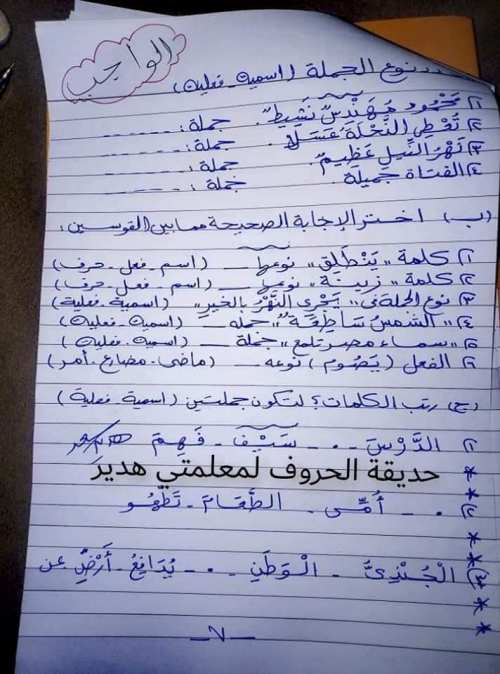 الواجب
حدد نوع الجملة (اسمية - فعلية)
١) مَحْمُود مُهَنْدِسٌ نَشِيطٌ. جملة: ------
٢) تُعْطِي النَّحْلَةُ عَسَلًا. جملة: ------
٣) نَهْرُ النِّيلِ عَظِيمٌ. جملة: ------
٤) الفَتَاة جَمِيلَة. جملة: ------
(ب) اختر الإجابة الصحيحة مما بين القوسين:
١) كلمة "يَنْطَلِق" نوعها ــ (اسم - فعل - حرف)
٢) كلمة "زَيْنَة" نوعها ــ (اسم - فعل - حرف)
٣) نوع الجملة في "يَجْرِي النَّهْرُ بالخيرِ" (اسمية - فعلية)
٤) "الشَّمْسُ سَاطِعَةٌ" جملة ــ (اسمية - فعلية)
٥) "سماء مصر تلمع" جملة ــ (اسمية - فعلية)
٦) الفعل (يَصُوم) نوعه ــ (ماضى - مضارع - أمر)
(ج) رتب الكلمات؛ لتكون جملتين (اسمية - فعلية)
١) الدَّرْسَ - . - سَيْف - فَهِمَ
* حديقة الحروف لمعلمتي هدير
*
٢) . - أُمِّى - الطَّعَامَ - تَطْهُو
*
*
٣) الْجُنْدِىُّ - الْوَطَنِ - . - يُدَافِعُ - أَرْضِ - عن
*
*